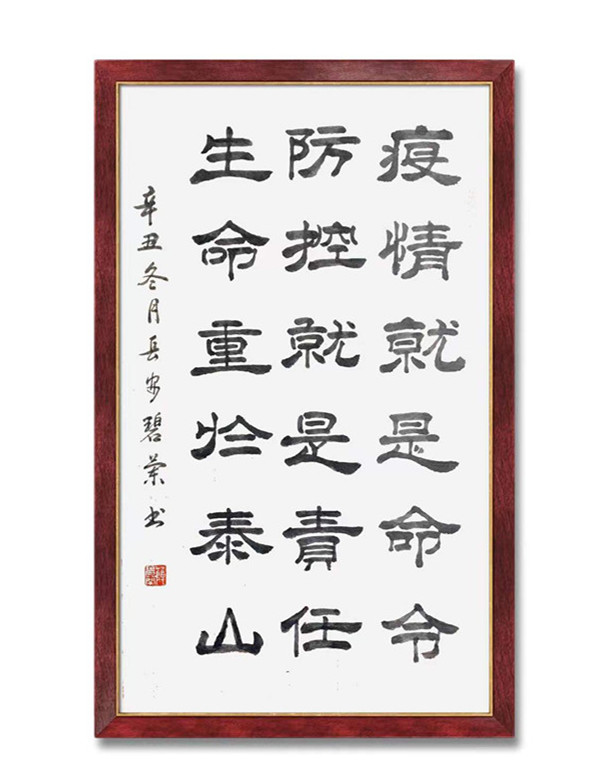 疫情就是命令
防控就是責任
生命重於泰山
辛丑冬月長安碧蘭书